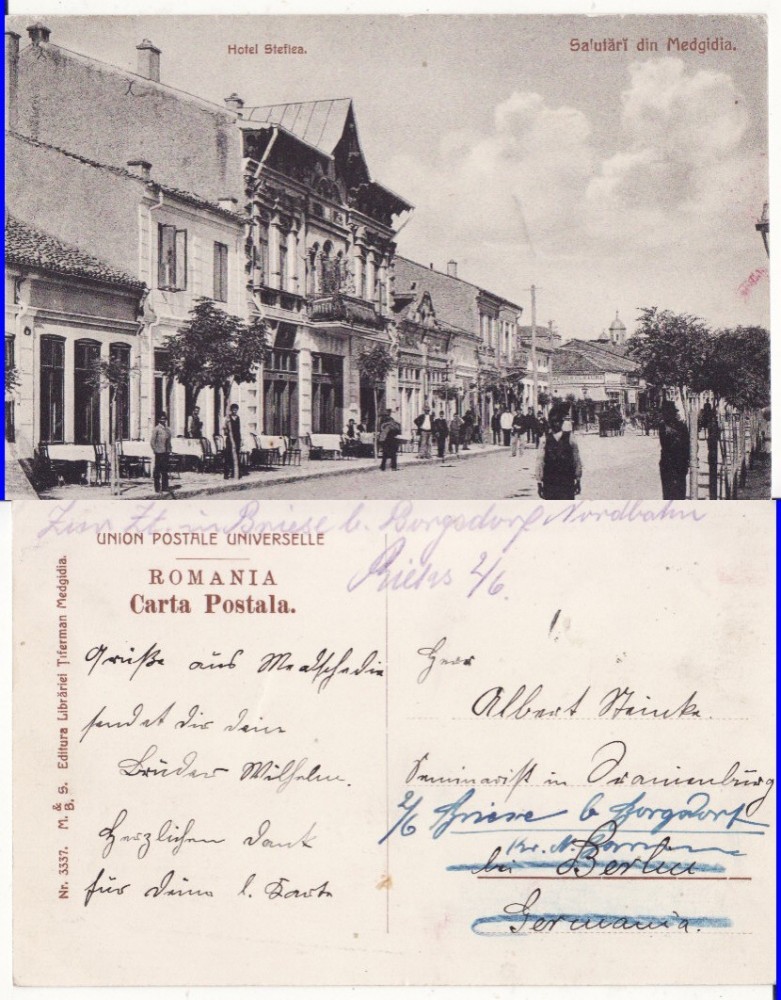 Hotel Steflea.
Salutări din Medgidia.
Zur Zt. in Briese b. Borgsdorf Nordbahn
2/6.
UNION POSTALE UNIVERSELLE
ROMANIA
Carta Postala.
Nr. 3337. M. & B. S. Editura Librăriei Tiferman Medgidia.
Grüße aus Medschedie
sendet dir dein
Bruder Wilhelm.
Herzlichen Dank
für deine l. Karte
Herr
Albert Steinke.
Seminarist in Oranienburg
2/6 Briese b Borgsdorf
Kr. N.
bei Berlin
Germania.